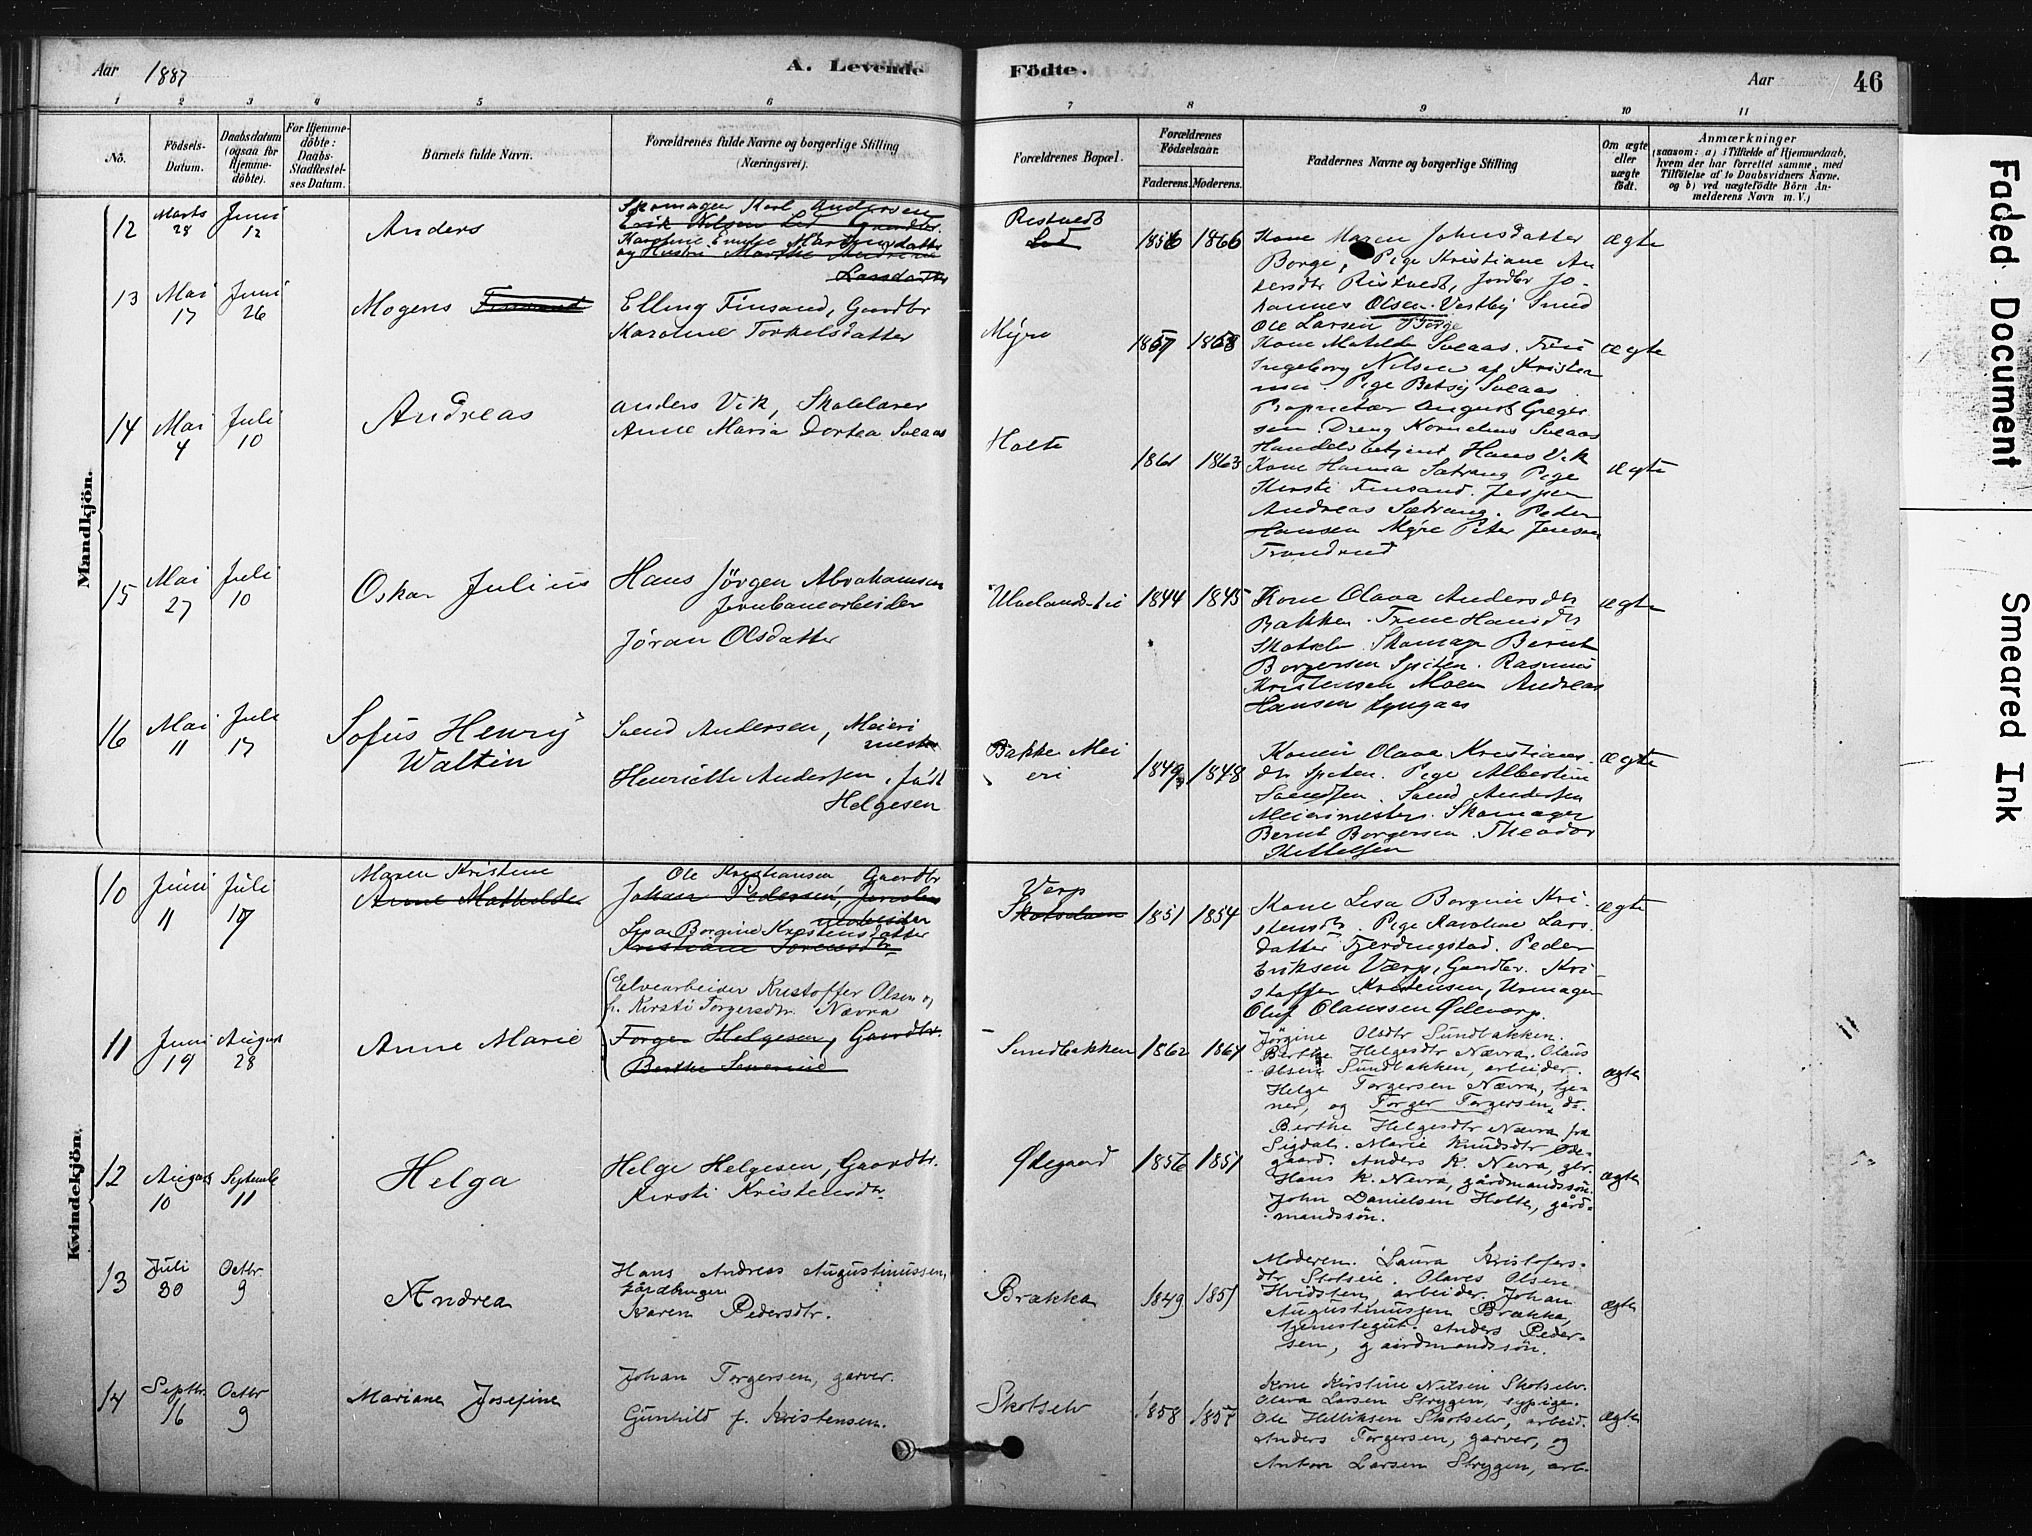 Aar 1887
A. Levende Födte.
Aar 46
1 2 3 4 5 6 7 8 9 10 11
No.
Födsels-Datum.
Daabsdatum (ogsaa for Hjemme-döbte).
For Hjemme-döbte: Daabs-Stadfæstel-ses Datum.
Barnets fulde Navn.
Forældrenes fulde Navne og borgerlige Stilling (Næringsvei).
Forældrenes Bopæl.
Forældrenes Födselsaar.
Faderens. Moderens.
Faddernes Navne og borgerlige Stilling
Om ægte eller uægte födt.
Anmærkninger
(saasom: a) i Tilfælde af Hjemmedaab, hvem der har forrettet samme, med Tilföielse af to Daabsvidners Navne. og b) ved uægtefödte Börn An-melderens Navn m. V.)
Mandkjön.
12 Marts 28 Juni 12 Anders
Skomager Karl Andersen
Karoline Emilie Martinsdatter
og Hustru Marthe Andrine
Larsdatter
Ristvedt
Lid
1856 1866
Kone Maren Johnsdatter
Borge, Pige Kristiane An
dersdtr Ristvedt, Jordbr Jo-
hannes Olsen Vestby Smed
Ole Larsen Borge
ægte
13 Mai 17 Juni 26 Mogens Finsand
Elling Finsand, Gaardbr
Karoline Torkelsdatter
Myre
1857 1858
Kone Matilde Sveaas. Frue
Ingeborg Nilsen af Kristia
nia. Pige Betsy Sveaas
Proprietær August Greger
sen. Dreng Kornelius Sveaas
ægte
14 Mai 4 Juli 10 Andreas
Anders Vik, Skolelærer
Anne Maria Dortea Sveaas
Holte
1861 1863
Handelsbetjent Hans Vik
Kone Hanna Sætrang Pige
Kersti Finsand. Jesper
Andreas Sætrang. Peder
Hansen Myre Peter Jensen
Trandrud
ægte
15 Mai 27 Juli 10 Oskar Julius
Hans Jörgen Abrahamsen
Jernbanearbeider
Jöran Olsdatter
Ulvelands-eie
1844 1845
Kone Olava Andersdtr
Bakken. Trine Hansdtr
Skotselv. Skomager Bernt
Borgersen Spiten. Rasmus
Kristensen Moen Andreas
Hansen Lyngaas
ægte
16 Mai 11 Juli 17 Sofus Henry
Waltin
Svend Andersen, Meieri
mester
Henriette Andersen, födt
Helgesen
Bakke Mei
eri
1849 1848
Konen Olava Kristians-
dtr Spiten. Pige Albertine
Svendsen. Svend Andersen
Meierimester. Skomager
Bernt Borgersen. Theodor
Kittelsen
ægte
Kvindekjön.
10 Juni 11 Juli 17 Maren Kristine
Anne Mathilde
Ole Kristiansen Gaardbr
Johan Pedersen, Jernban
earbeider
Lisa Borgine Kristensdatter
Kristiane Sörensdtr
Værp
Skotselven
1851 1854
Kone Lisa Borgine Kri-
stensdtr. Pige Karoline Lars
datter Fjerdingstad. Peder
Eriksen Værp, Gaardbr. Kri
stoffer Kristensen, Urmager
Oluf Olaussen Ödevarp.
ægte
11 Juni 19 August 28 Anne Marie
Elvearbeider Kristoffer Olsen og
h. Kirsti Torgersdtr. Nævra
Torger Helgesen, Gaardbr.
Berthe Severine
Sundbakken
1862 1864
Jørgine Olsdtr Sundbakken.
Berthe Helgesdtr Nævra. Olaus
Olsen Sundbakken, arbeider.
Helge Torgersen Nævra, tje-
ner, og Torger Torgersen, do.
ægte
12 August 10 Septembr 11 Helga
Helge Helgesen, Gaardbr.
Kirsti Kristensdtr
Ødegaard
1856 1851
Berthe Helgesdtr Nævra fra
Sigdal. Marie Knudsdtr Øde-
gaard. Anders K. Nevra, gbr.
Hans K. Nevra, gårdmandssön.
John Danielsen Holte, gård-
mandssön.
ægte
13 Juli 30 Octbr. 9 Andrea
Hans Andreas Augustinussen,
gårdbruger
Karen Pedersdtr.
Brækka
1849 1851
Moderen. Laura Kristofers-
dtr Skotselv. Olaves Olsen
Hvidsten, arbeider. Johan
Augustinussen Brække,
tjenestegut. Anders Peder-
sen, gaardmandssön.
ægte
14 Septbr. 16 Octbr 9 Mariane Josefine
Johan Torgersen, garver.
Gunhild f. Kristensen.
Skotselv
1858 1857
Kone Kirstine Nilsen Skotselv.
Olava Larsen Strygen, sypige.
Ole Helliksen Skotselv, arbeid.
Anders Torgersen, garver, og
Anton Larsen Strygen, arb.
ægte
Faded Document
Smeared Ink